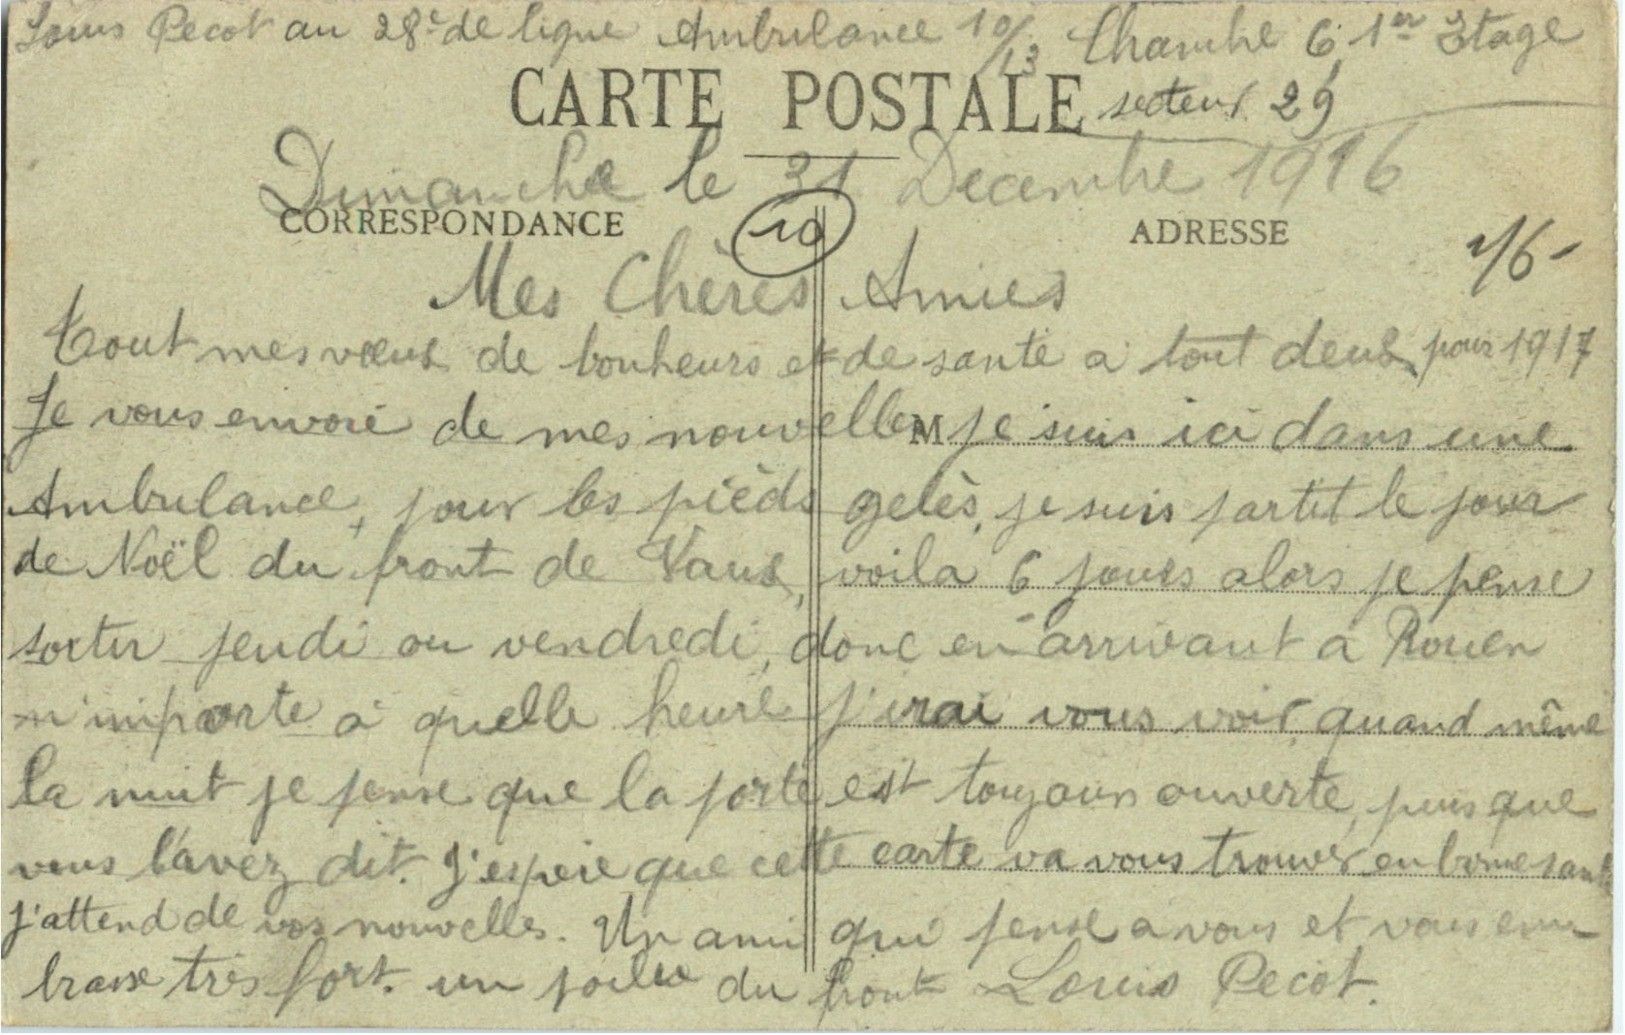 Louis Pecot au 28e de ligne Ambulance 10/13 Chambre 6 1er Etage
CARTE POSTALE secteur 29
Dimanche le 31 Decembre 1916
CORRESPONDANCE 10 ADRESSE
Mes Chères Amies
Tout mes vœux de bonheurs et de santé a tout deux pour 1917
Je vous envoie de mes nouvelles M je suis ici dans une
Ambulance, pour les pièds gelès, je suis partit le jour
de Noël du front de Vaux, voila 6 jours alors je pense
sortir jeudi ou vendredi, donc en arrivant a Rouen
n'importe a quelle heure j'irai vous voir, quand même
la nuit je pense que la porte est toujours ouverte, puisque
vous l'avez dit. J'espere que cette carte va vous trouver en bonne santé
j'attend de vos nouvelles. Un ami qui pense a vous et vous em
brasse très fort. un poilu du front Louis Pecot.